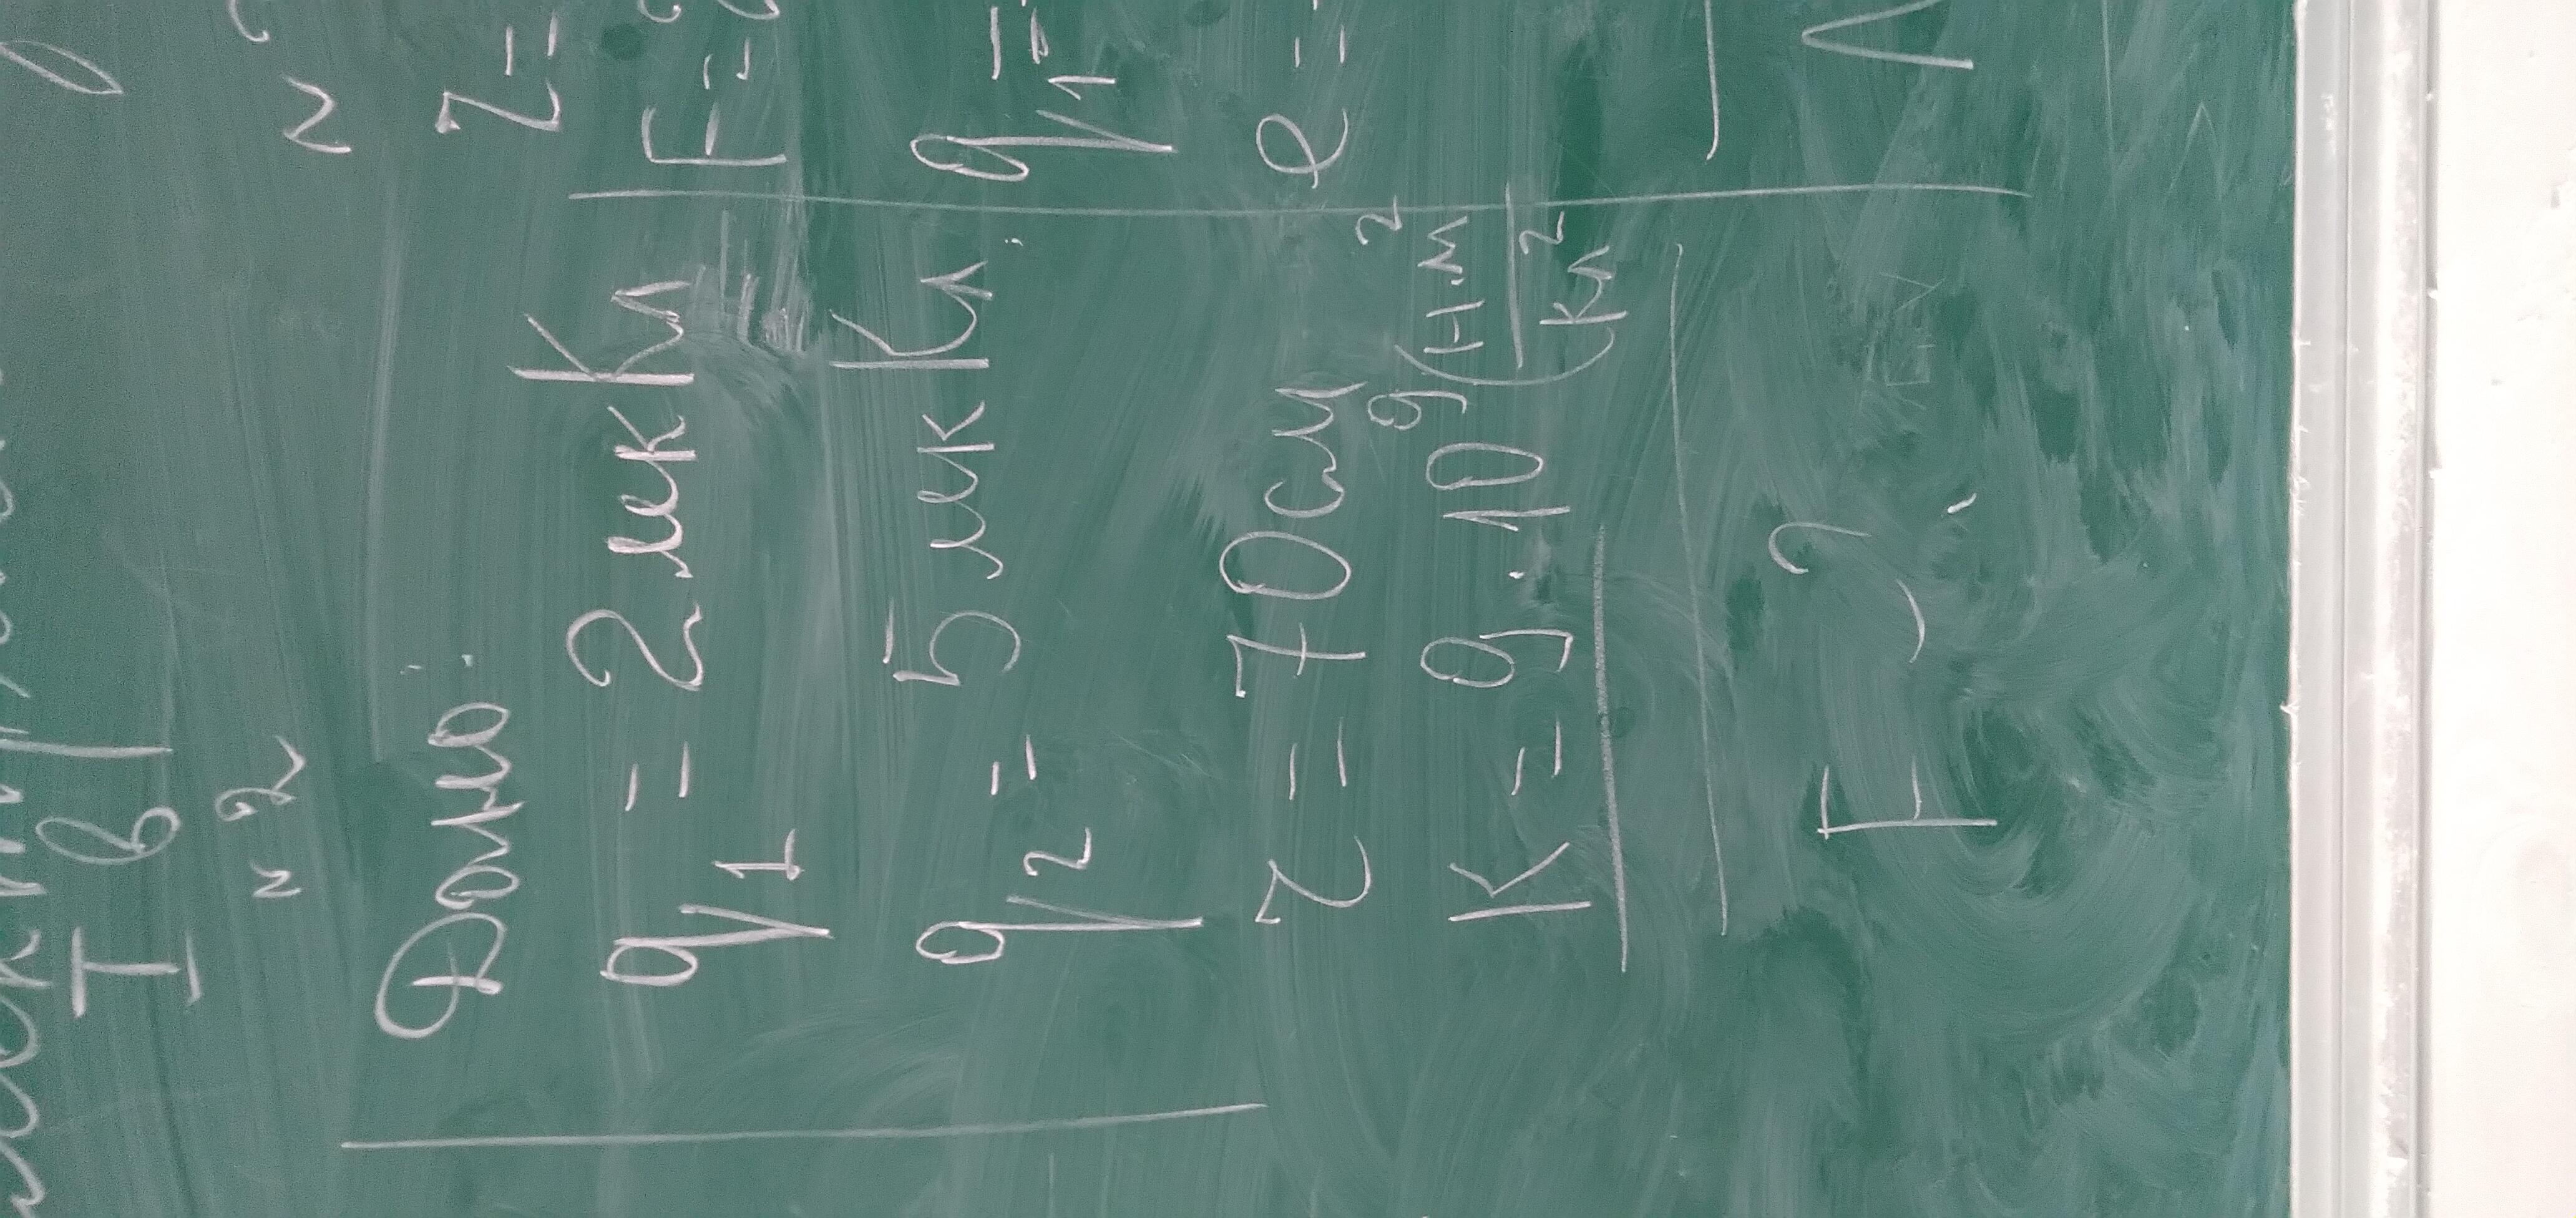 I в
№2
Дано:
q₁ = 2 мк Кл
q₂ = 5 мк Кл
r = 70 см
K = 9 · 10⁹ (Н·м² / Кл²
F - ?
r =
F =
q₁ =
e =